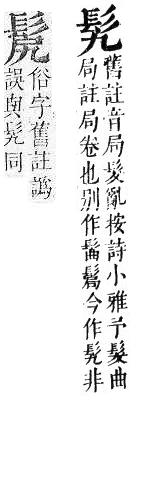 舊註音局髮亂按詩小雅予髮曲
局註局卷也別作今作非
俗字舊註譌
誤與同